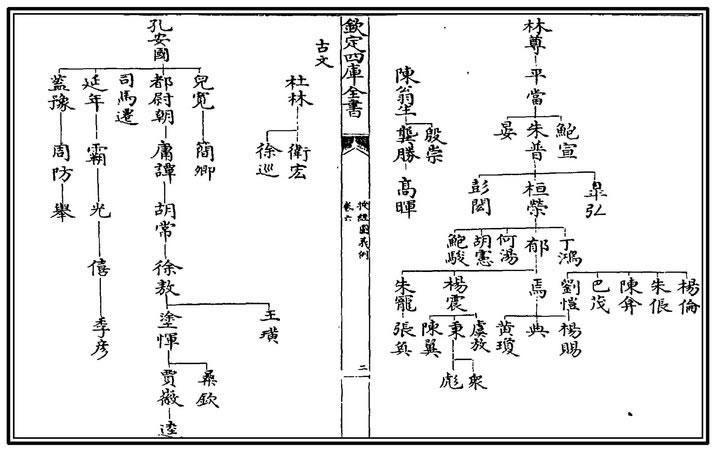 林尊
平當
鮑宣
朱普
晏
皋弘
桓榮
彭閎
丁鴻
郁
何湯
胡憲
鮑駿
楊倫
朱倀
陳弇
巴茂
劉愷
焉
楊震
朱寵
楊賜
典
黃瓊
虞放
秉
陳翼
張奐
衆
彪
陳翁生
殷崇
龔勝
高暉
欽定四庫全書
授經圖義例
卷六
二
古文
杜林
衛宏
徐巡
孔安國
兒寬
簡卿
都尉朝
庸譚
胡常
徐敖
王璜
塗惲
桑欽
賈徽
逵
司馬遷
延年
霸
光
僖
季彦
蓋豫
周防
舉